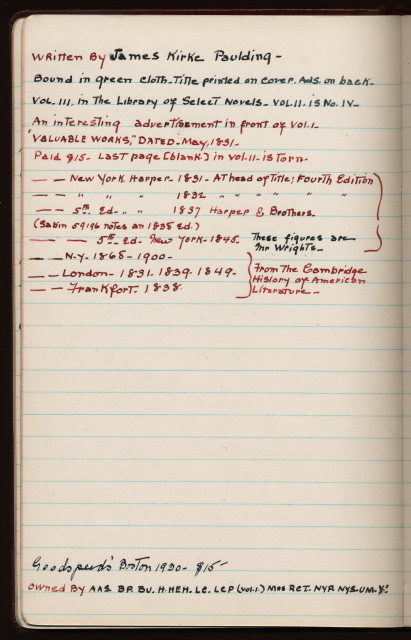 Written By James Kirke Paulding -
Bound in green cloth. Title printed on cover. Ads. on back -
Vol. III, in The Library of Select Novels - Vol. II. is No. IV -
An interesting advertisement in front of Vol. I -
"VALUABLE WORKS," DATED - May, 1831 -
Paid $15 - Last page [blank] in Vol. II - is torn -
— — New York. Harper - 1831 - At head of Title: Fourth Edition
— — " " " 1832 " " " " " "
— — 5th Ed - " " 1837 Harper & Brothers.
(Sabin 59196 notes an 1835 Ed.)
— — 5th Ed - New York - 1845. These figures are
Mr Wrights -
— — N.Y. 1868 - 1900 -
— — London - 1831. 1839. 1849 - From The Cambridge
— — Frankfort. 1838 History of American
Literature -
Goodspeed's Boston 1920 - $15 -
Owned By AAS. BP. BU. H. HEH. LC. LCP (vol. I.) MHS RCT. NYP. NYS. UM. Y.